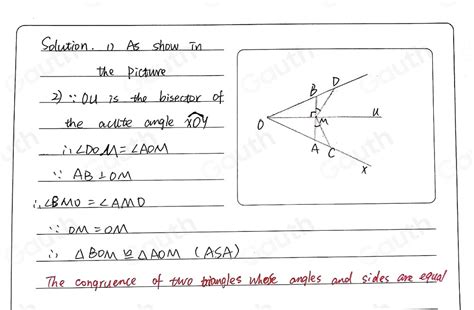 Solution. 1) As show in
the picture
2) ∵ OU is the bisector of
the acute angle xOy
∴ ∠DOM = ∠AOM
∵ AB ⊥ OM
∴ ∠BMO = ∠AMO
∵ OM = OM
∴ △BOM ≌ △AOM (ASA)
The congruence of two triangles whose angles and sides are equal
B
D
O
M
u
A
C
x